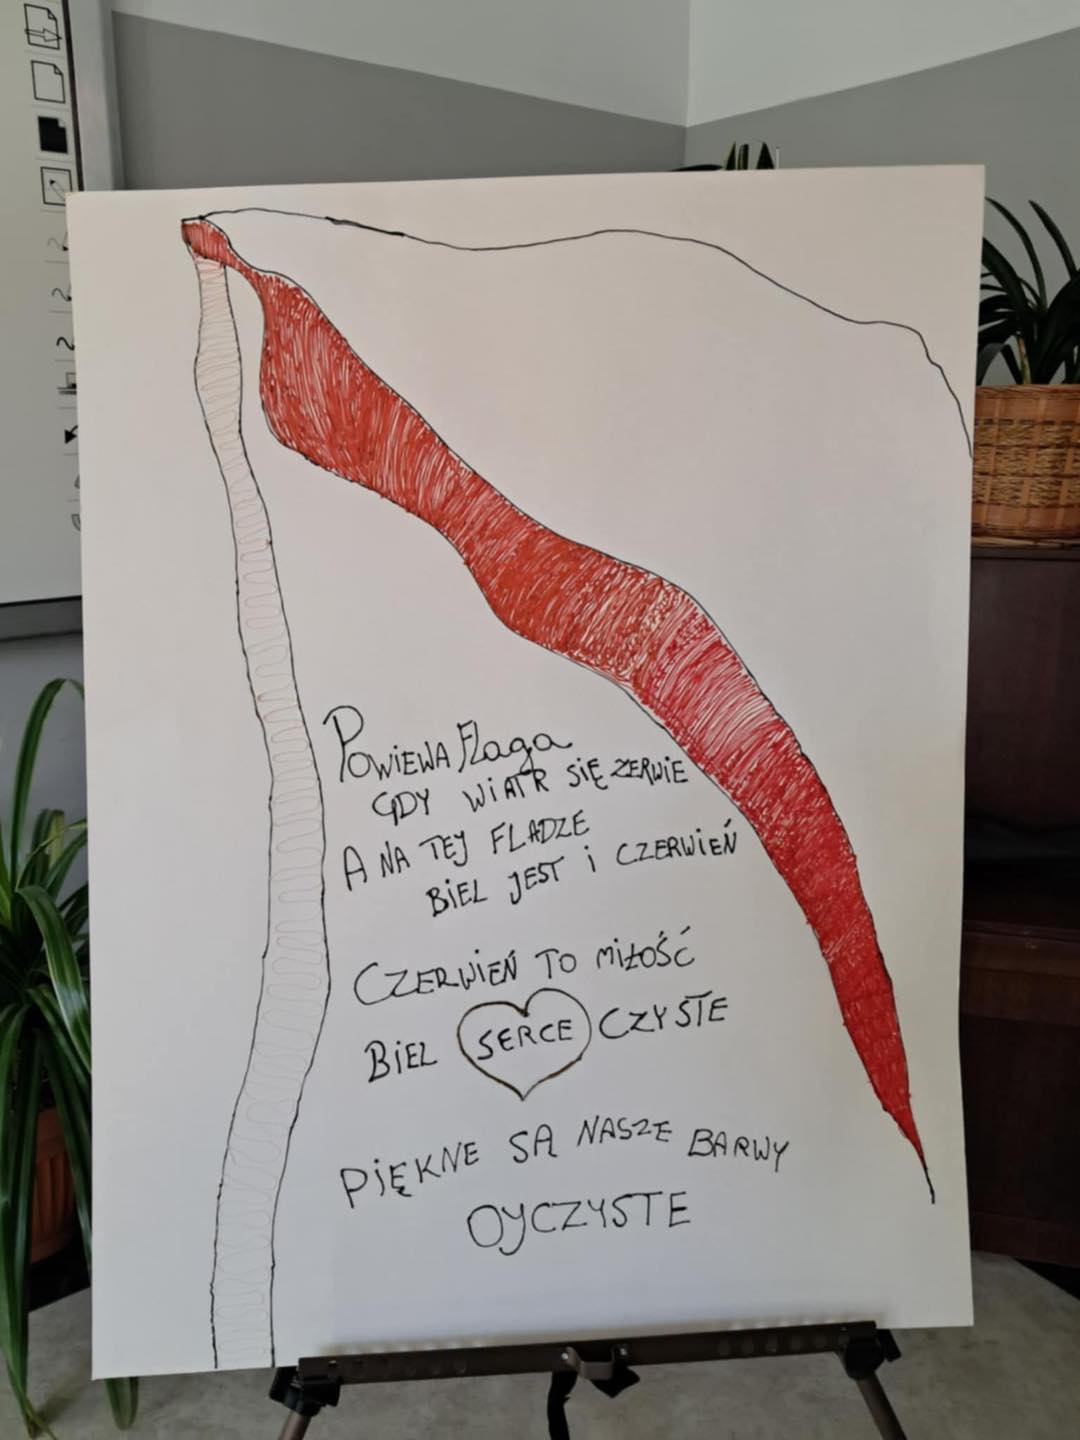 POWIEWA FLAGA
GDY WIATR SIĘ ZERWIE
A NA TEJ FLADZE
BIEL JEST I CZERWIEŃ
CZERWIEŃ TO MIŁOŚĆ
BIEL SERCE CZYSTE
PIĘKNE SĄ NASZE BARWY
OJCZYSTE